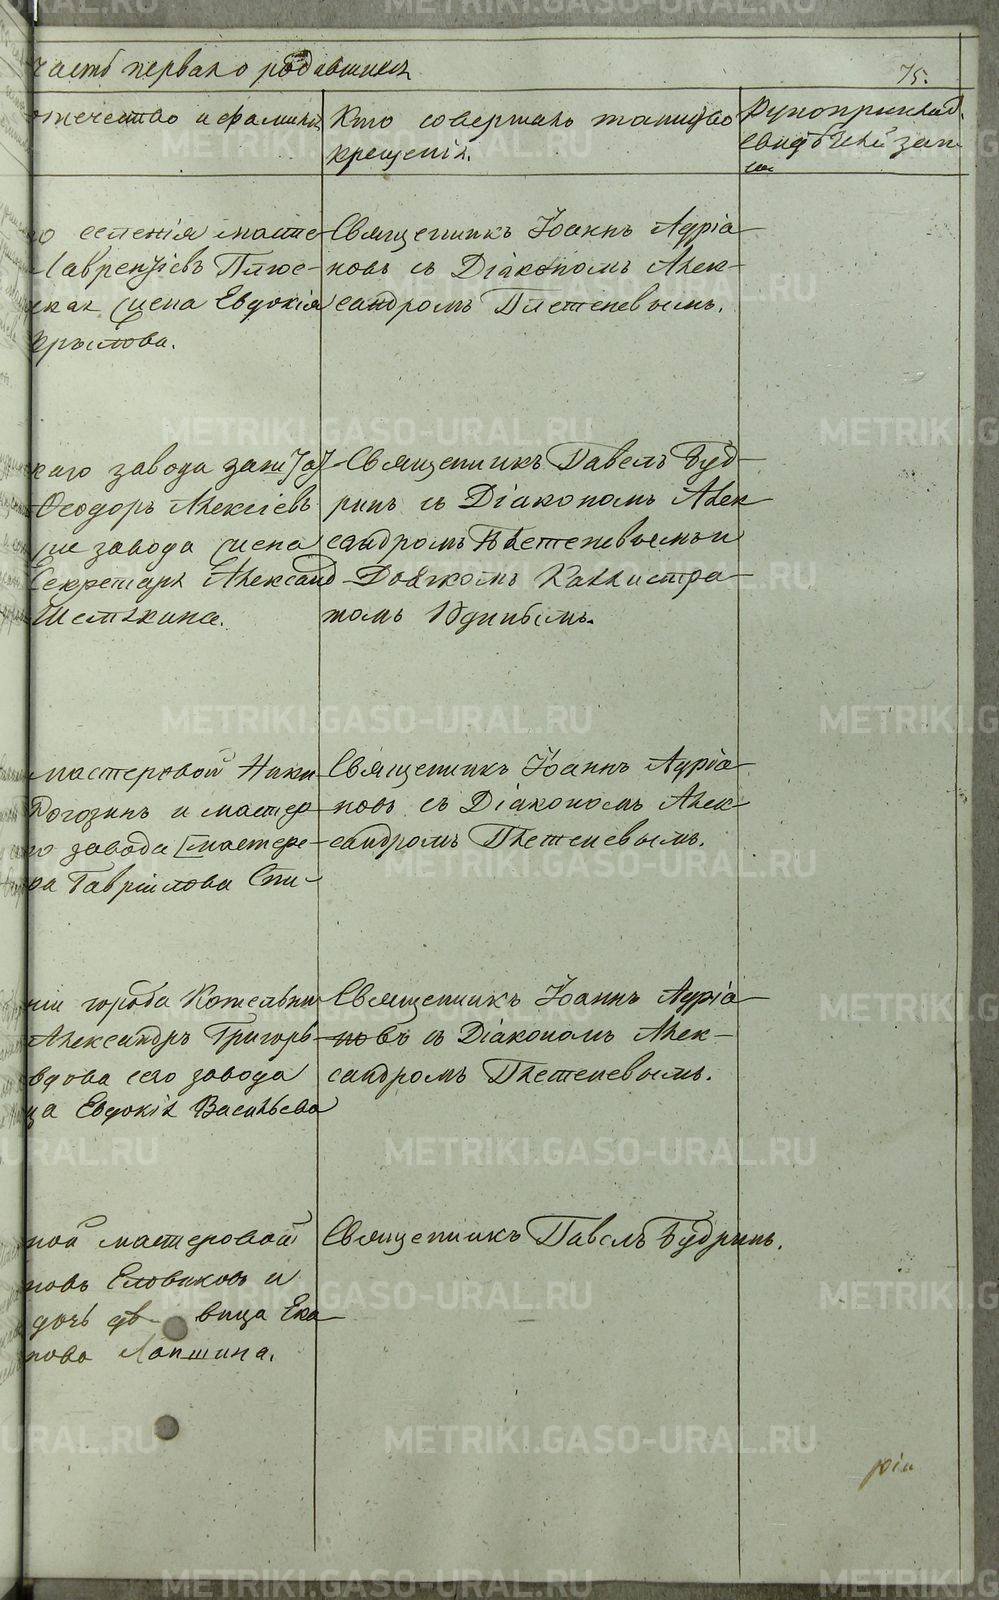 часть первая о родившихся
75.
отечество и фамилія
Кто совершалъ таинство
крещенія.
Рукоприклад.
свидѣтелей запи
си
го селенія масте
Лаврентіевъ Плюс-
ская жена Евдокія
Крылова.
Священникъ Іоаннъ Адріа
новъ съ Діакономъ Алек-
сандромъ Плетеневымъ.
каго завода
Ѳеодоръ Алексіевъ
завода жена
Секретаря Александ
Шемякина.
Священникъ Павелъ Буд-
ринъ съ Діакономъ Алек
сандромъ Плетеневымъ и
Дьячкомъ Каллистра-
томъ Юдинымъ.
мастеровой Ники
Рогозинъ и мастер-
го завода мастере-
ва Гавріилова Спи-
Священникъ Іоаннъ Адріа
новъ съ Діакономъ Алек-
сандромъ Плетеневымъ.
ніи города Котельни
Александръ Григорь-
вдова сего завода
ца Евдокія Васильева
Священникъ Іоаннъ Адріа-
новъ съ Діакономъ Алек-
сандромъ Плетеневымъ.
ной мастеровой
повъ Еловиковъ и
дочь дѣвица Ека-
пова Лапшина.
Священникъ Павелъ Будринъ.
ріи
METRIKI.GASO-URAL.RU